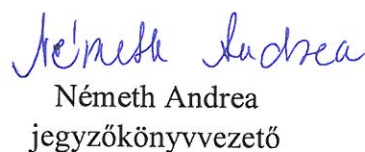 Németh Andrea
Németh Andrea
jegyzőkönyvvezető